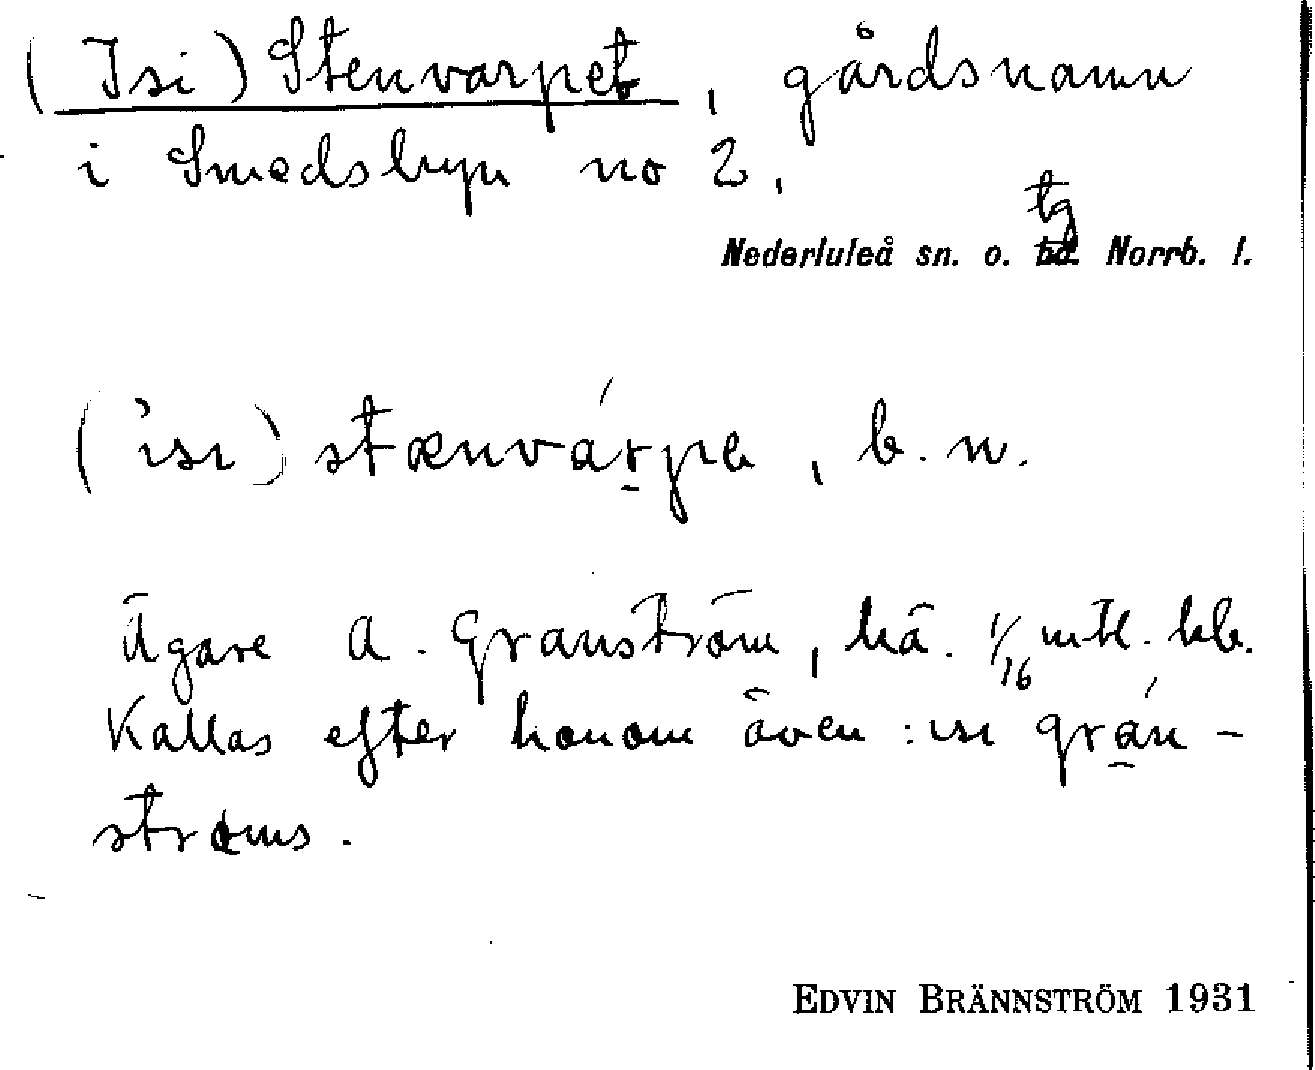 (Isi) Stenvarpet, gårdsnamn
i Smedsbyn no 2.
tg
Nederluleå sn. o. hd. Norrb. l.
( isi) stænvárpe, b. n.
Ägare A. Granström, hä. 1/16 mtl. kb.
Kallas efter honom även: isi grán-
stroms.
EDVIN BRÄNNSTRÖM 1931